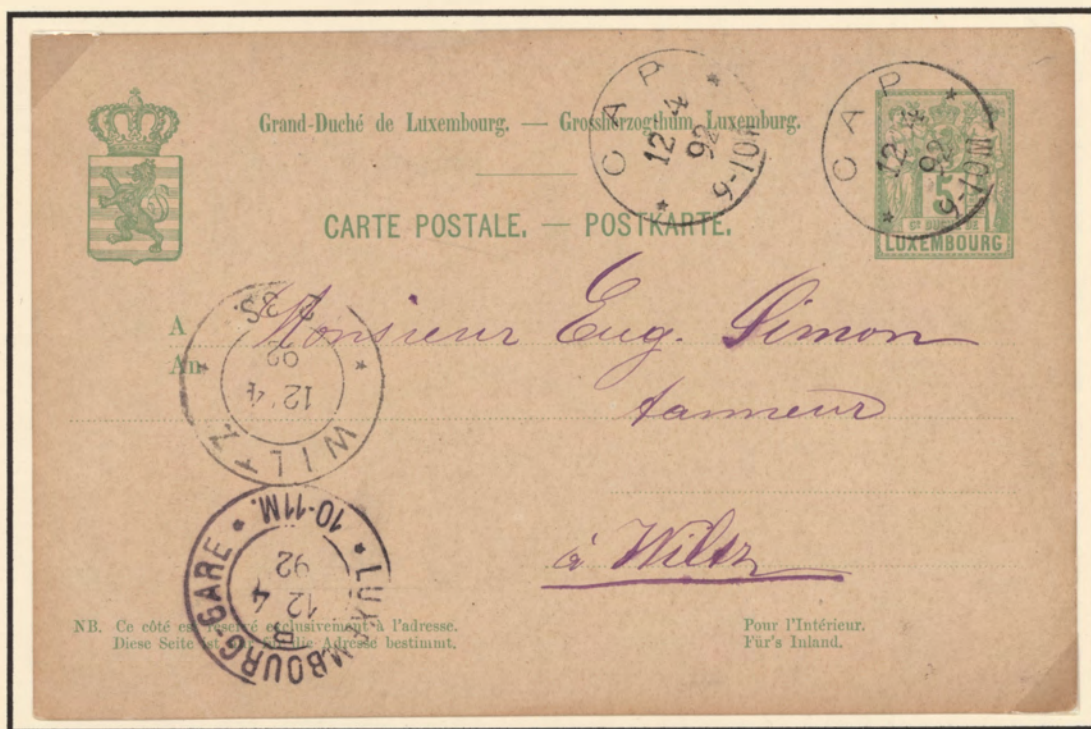 Grand-Duché de Luxembourg. — Grossherzogthum Luxemburg.
CARTE POSTALE. — POSTKARTE.
CAP
12 4
92
9-10M
CAP
12 4
92
9-10M
5
Gd DUCHÉ DE
LUXEMBOURG
A Monsieur Eug. Simon
An
tanneur
à Wiltz
WILTZ
12 4
92
LUXEMBOURG-GARE
10-11M.
12 4
92
B
NB. Ce côté est réservé exclusivement à l'adresse.
Diese Seite ist nur für die Adresse bestimmt.
Pour l'Intérieur.
Für's Inland.